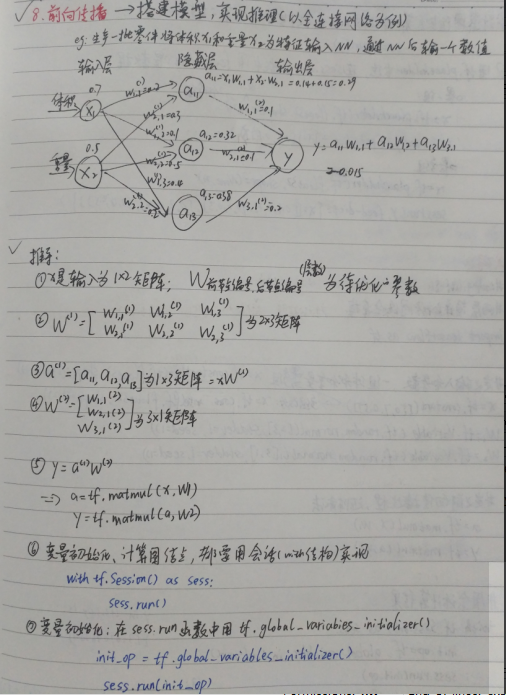 8.前向传播 → 搭建模型，实现推理(以全连接网络为例)
eg.生产一批零件将体积x₁和重量x₂为特征输入NN，通过NN后输出一个数值
输入层 隐藏层 输出层
a₁₁=x₁w₁,₁+x₂·w₂,₁=0.14+0.15=0.29
0.7 w₁,₁⁽¹⁾=0.2 a₁₁ w₁,₁⁽²⁾=0.1
体积 x₁ w₂,₁⁽¹⁾=0.3
w₁,₂⁽¹⁾=0.1 a₁₂=0.32
0.5 a₁₂ w₂,₁⁽²⁾=0.1 y y=a₁₁w₁,₁+a₁₂w₁,₂+a₁₃w₂,₁
重量 x₂ w₂,₂⁽¹⁾=0.5 =0.015
w₁,₃⁽¹⁾=0.4 a₁₃=0.38
w₂,₃⁽¹⁾ a₁₃ w₃,₁⁽²⁾=0.2
推导：
①x是输入为1×2矩阵； W前节点编号,后节点编号(层数) 为待优化参数
②W⁽¹⁾=[w₁,₁⁽¹⁾ w₁,₂⁽¹⁾ w₁,₃⁽¹⁾
w₂,₁⁽¹⁾ w₂,₂⁽¹⁾ w₂,₃⁽¹⁾]为2×3矩阵
③a⁽¹⁾=[a₁₁,a₁₂,a₁₃]为1×3矩阵=xW⁽¹⁾
④W⁽²⁾=[w₁,₁⁽²⁾
w₂,₁⁽²⁾
w₃,₁⁽²⁾]为3×1矩阵
⑤y=a⁽¹⁾W⁽²⁾
=> a=tf.matmul(x,W1)
y=tf.matmul(a,W2)
⑥变量初始化、计算图结点，都要用会话(with结构)实现
with tf.Session() as sess:
sess.run()
⑦变量初始化：在sess.run函数中用tf.global_variables_initializer()
init_op = tf.global_variables_initializer()
sess.run(init_op)